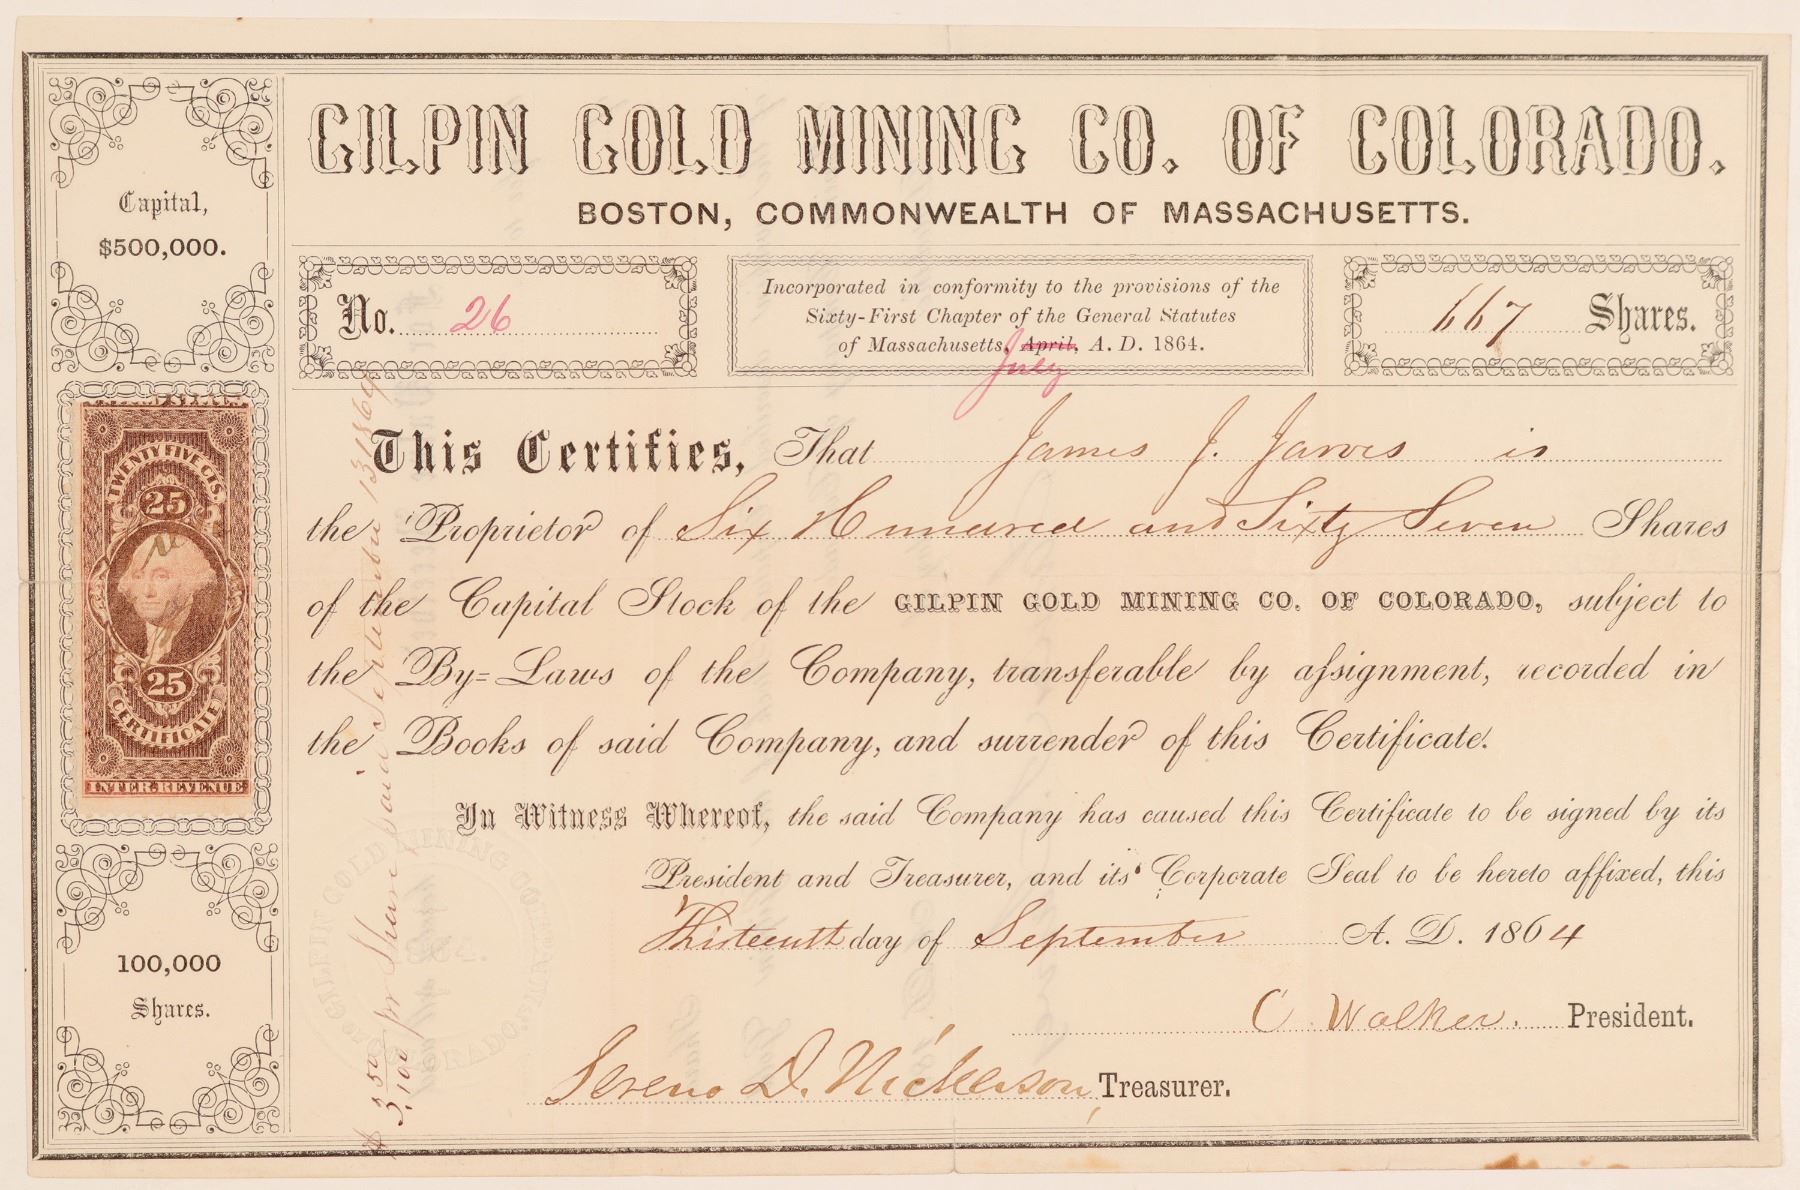 GILPIN GOLD MINING CO. OF COLORADO.
BOSTON, COMMONWEALTH OF MASSACHUSETTS.
Capital,
$500,000.
No. 26
Incorporated in conformity to the provisions of the
Sixty-First Chapter of the General Statutes
of Massachusetts, April, A. D. 1864.
July
667 Shares.
TWENTY FIVE CTS.
25
25
CERTIFICATE
INTER. REVENUE
This Certifies, That James J. Jarves is
the Proprietor of Six Hundred and Sixty Seven Shares
of the Capital Stock of the GILPIN GOLD MINING CO. OF COLORADO, subject to
the By=Laws of the Company, transferable by assignment, recorded in
the Books of said Company, and surrender of this Certificate.
In Witness Whereof, the said Company has caused this Certificate to be signed by its
President and Treasurer, and its Corporate Seal to be hereto affixed, this
Thirteenth day of September A. D. 1864
C. Walker. President.
Sereno D. Nickerson, Treasurer.
100,000
Shares.
$3 50/100 per Share paid September 13 1864
GILPIN GOLD MINING COMPANY
COLORADO